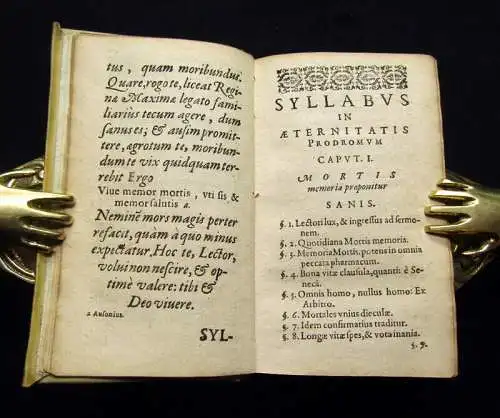 tus, quam moribundus.
Quare, rogo te, liceat Regi-
næ Maximæ legato fami-
liarius tecum agere, dum
sanus es; & ausim promit-
tere, agrotum te, moribun-
dum te vix quidquam ter-
rebit Ergo
Viue memor mortis, vti sis &
memor salutis a.
Neminē mors magis perter
refacit, quam à quo minus
expectatur. Hoc te, Lector,
volui non nescire, & op-
timè valere: tibi &
Deo vivere.
a Ausonius.
SYL-
SYLLABVS
IN
ÆTERNITATIS
PRODROMVM
CAPVT. I.
MORTIS
memoria proponitur
SANIS.
§. 1. Lectori lux, & ingressus ad sermo-
nem.
§. 2. Quotidiana Mortis memoria.
§. 3. Memoria Mortis, potens in omnia
peccata pharmacum.
§. 4. Bonæ vitæ clausula, quanti: è Se-
neca.
§. 5. Omnis homo, nullus homo: Ex
Arbitro.
§. 6. Mortales vnius dieculæ.
§. 7. Idem confirmatius traditur.
§. 8. Longæ vitæ spes, & vota inania.
§. 9.